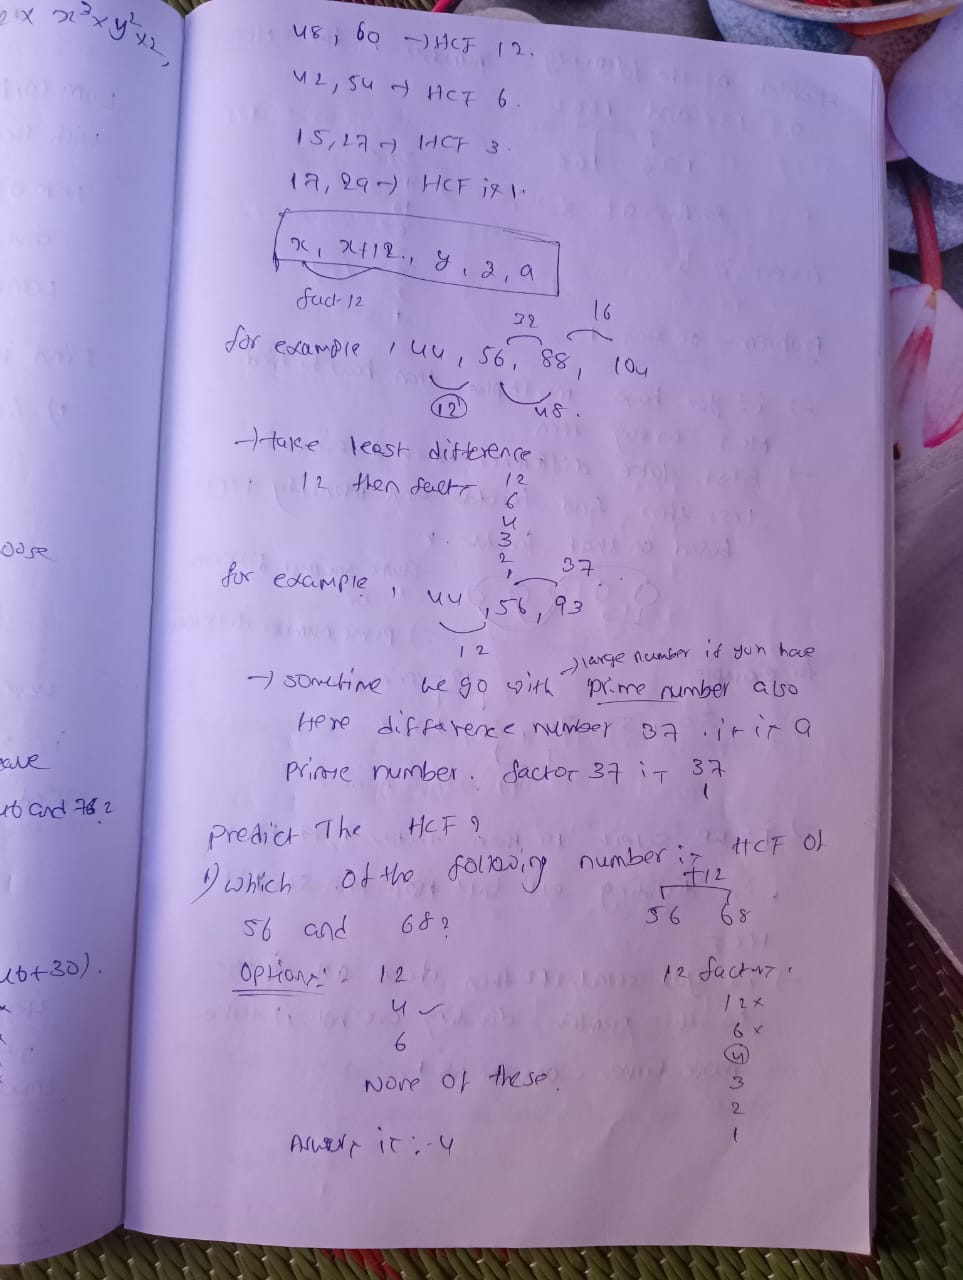 2 x x³ x y² x 2,
48, 60 → HCF 12.
42, 54 → HCF 6.
15, 27 → HCF 3.
17, 29 → HCF is 1.
x, x+12, y, z, a
fact 12
32
16
for example, 44, 56, 88, 104
12
48.
→ take least difference.
12 then fact 12
6
4
3
2
1
37
for example, 44, 56, 93
12
→ large number if you have
→ sometime we go with prime number also
Here difference number 37. it is a
prime number. factor 37 is 37
1
Predict The HCF?
1) which of the following number is HCF of
56 and 68?
+12
56 68
Options: 12
4 ✓
6
None of these.
12 factor.
12 x
6 x
4
3
2
1
Answer is :- 4
oose
46 and 76?
46+30).